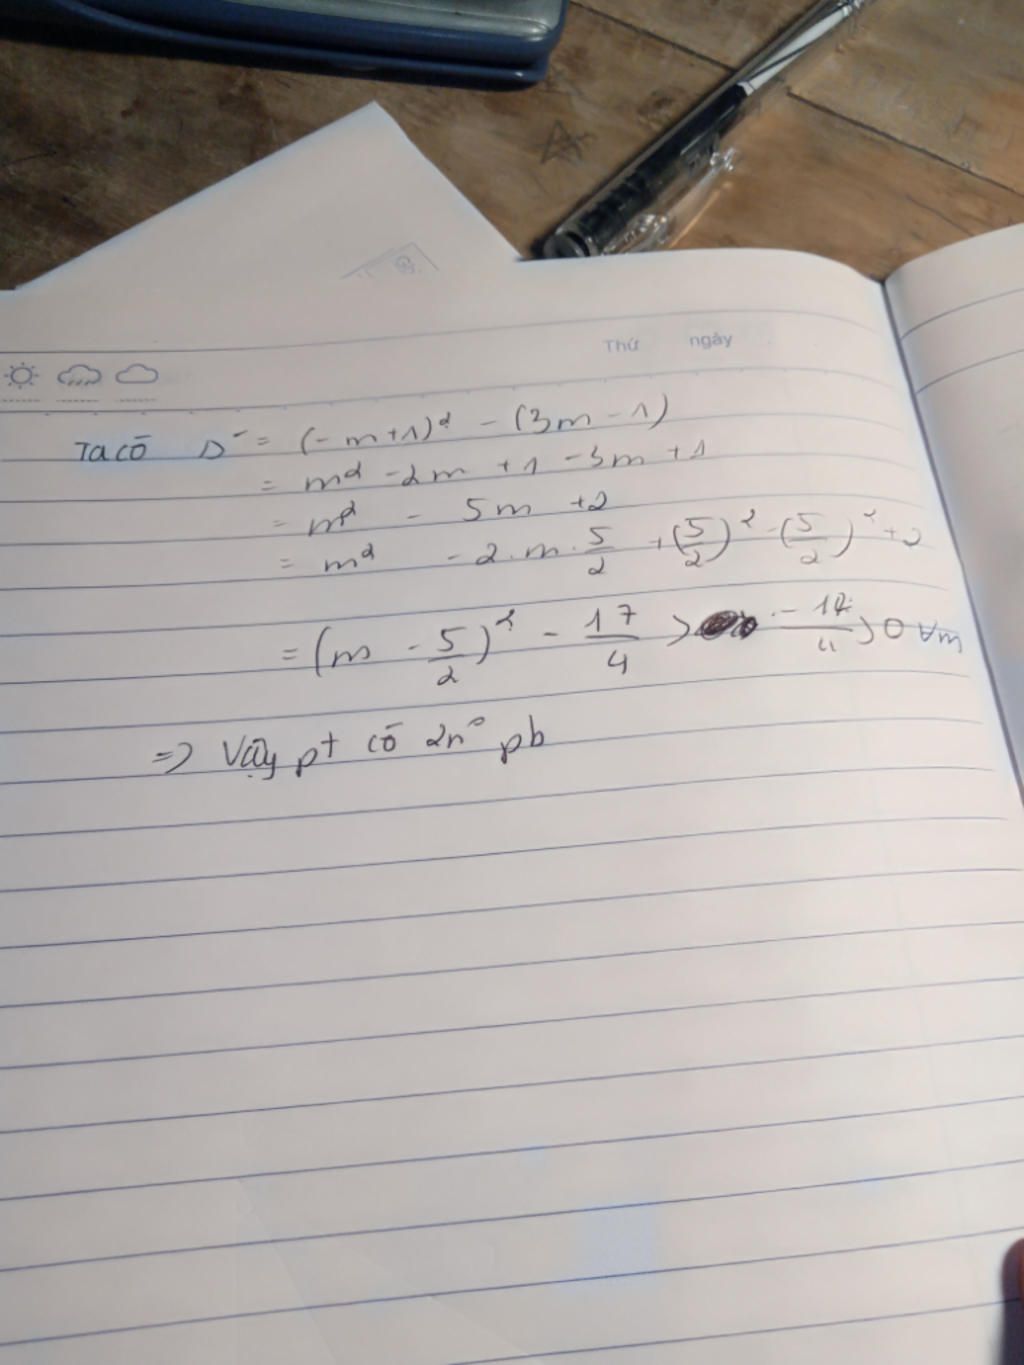 Thứ ngày
Ta có Δ' = (-m+1)² - (3m-1)
= m² - 2m + 1 - 3m + 1
= m² - 5m + 2
= m² - 2.m.5/2 + (5/2)² - (5/2)² + 2
= (m - 5/2)² - 17/4 > -17/4 > 0 ∀m
=> Vậy pt có 2n° pb